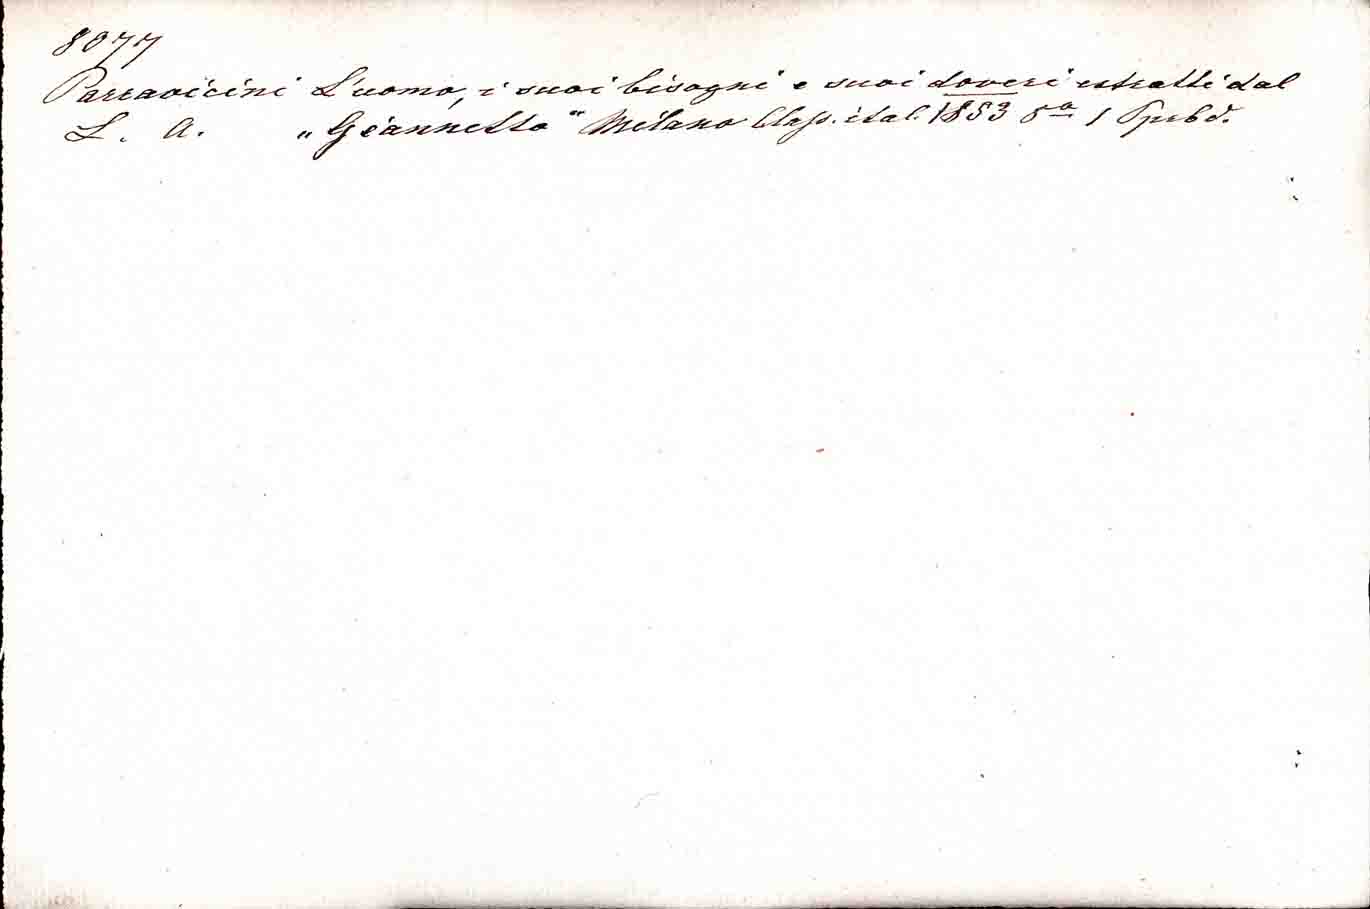 8077
Parravicini L'uomo, i suoi bisogni e suoi doveri estratti dal
L. A. "Giannetto" Milano Class. ital. 1853 8º 1 Ppebd.